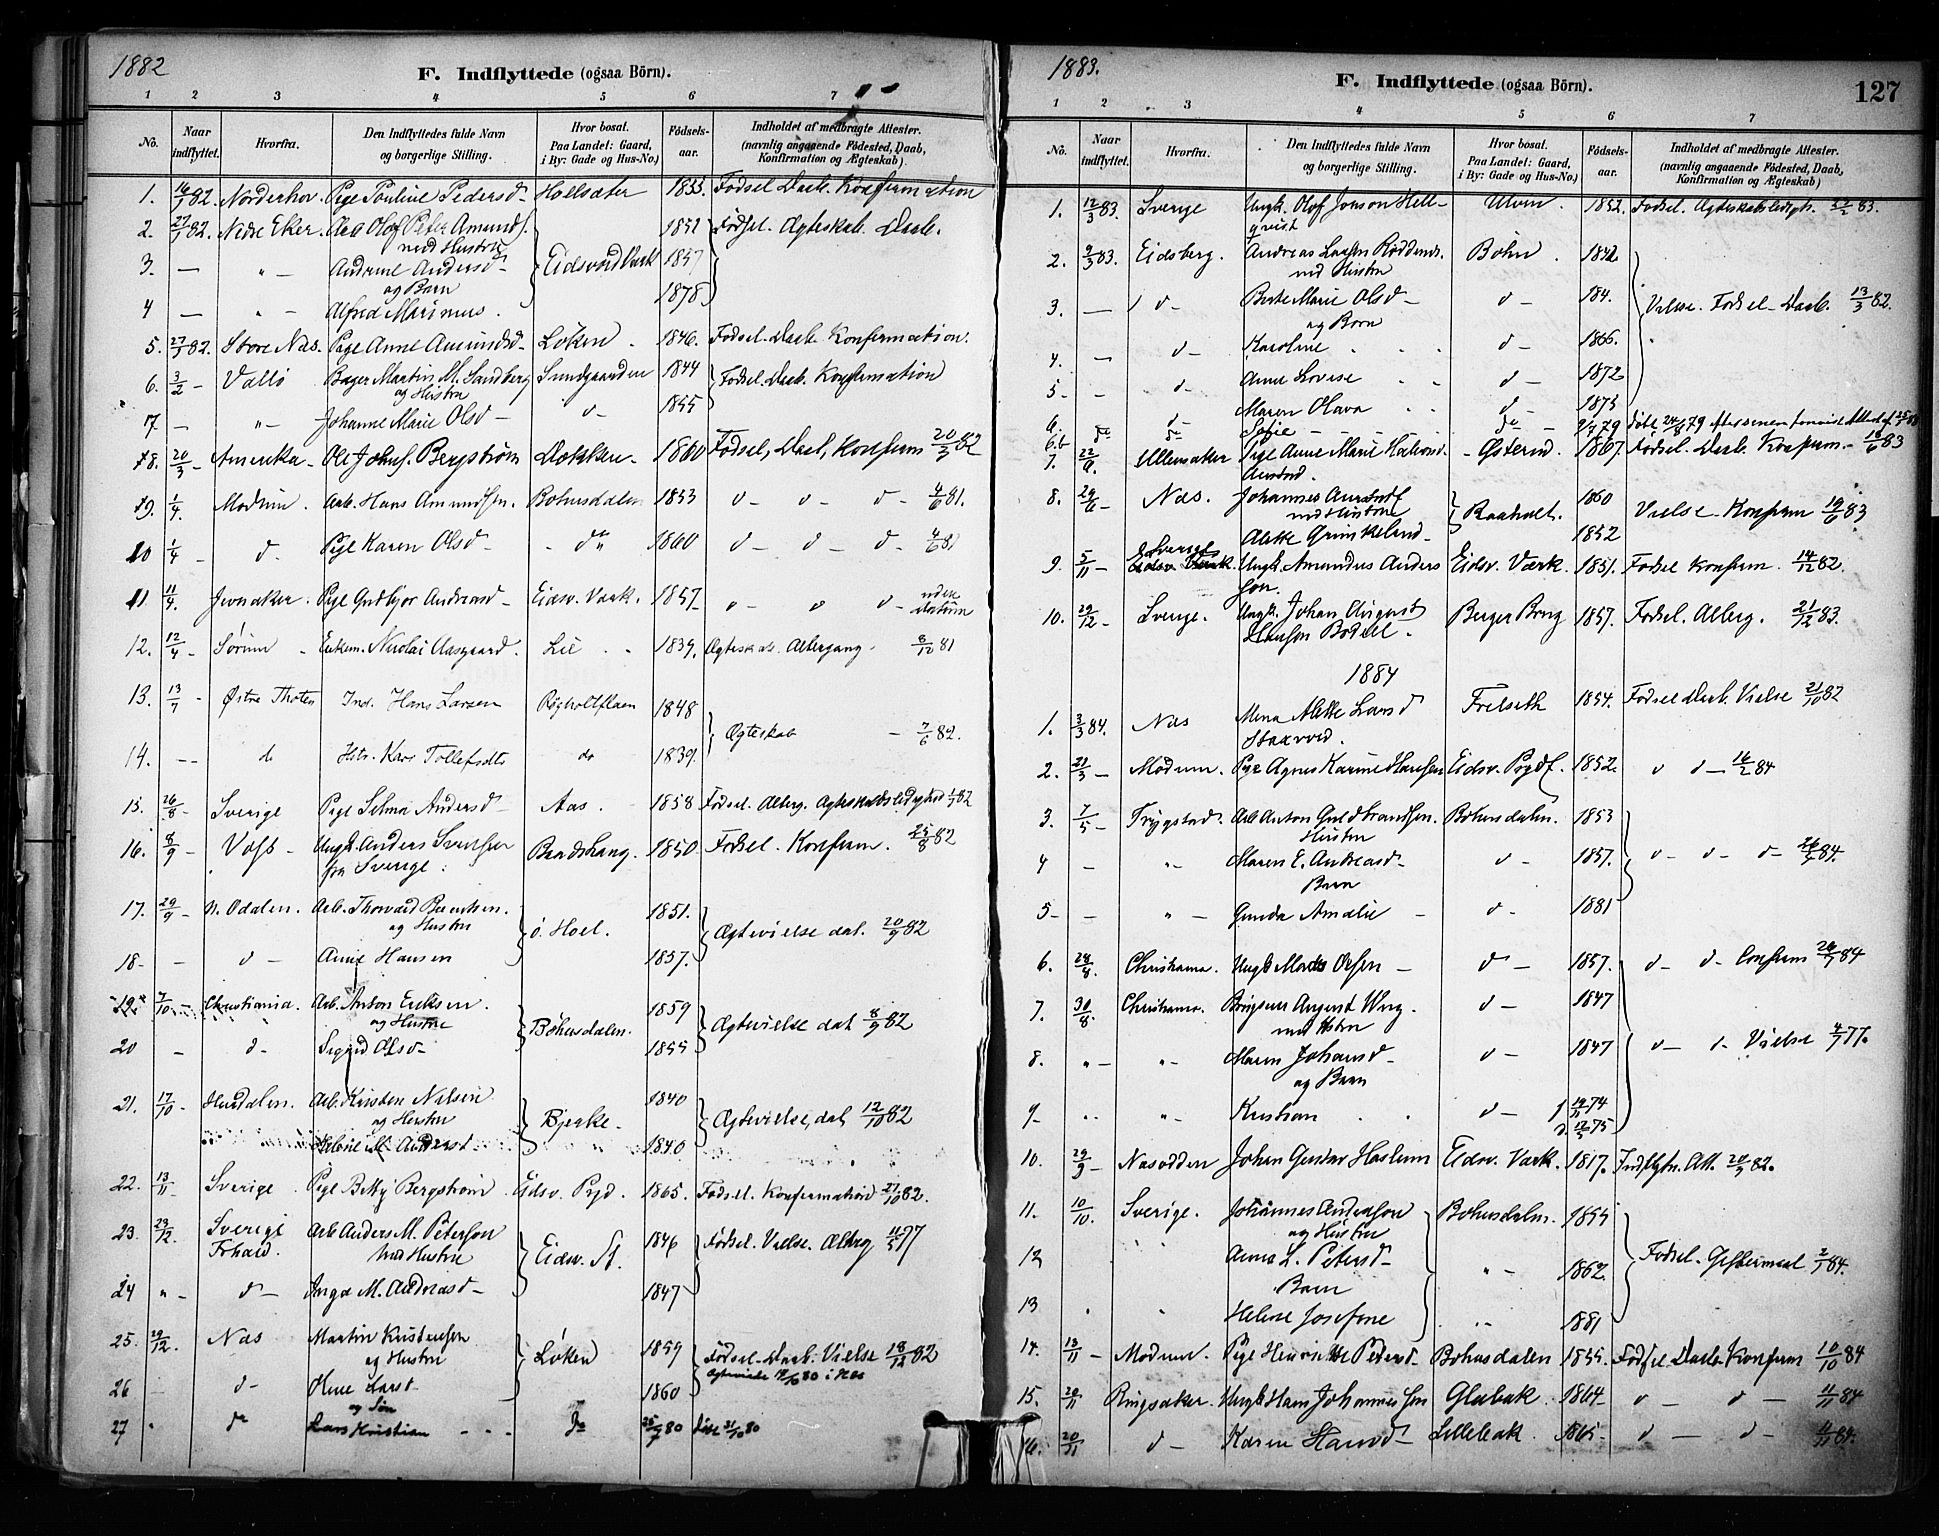 1882
F. Indflyttede (ogsaa Börn).
1 2 3 4 5 6 7
No. Naar indflyttet. Hvorfra. Den Indflyttedes fulde Navn og borgerlige Stilling. Hvor bosat. Paa Landet: Gaard, i By: Gade og Hus-No.) Födsels-aar. Indholdet af medbragte Attester. (navnlig angaaende Födested, Daab, Konfirmation og Ægteskab).
1. 16/1 82. Norderhov. Pige Pouline Pedersd Hollsæter 1855. Fødsel Daab Konfirmation
2. 27/1 82. Nedre Eker. Arb Olof Peter Amunds. 1852 Fødsel. Ægteskab. Daab.
med Hustru
3. — " — Andrine Andersd — Eidsvold Værk 1857
og Barn
4 — " — Alfred Marinius. 1878
5. 27/1 82. Store Næs. Pige Anne Amundsd — Løken. 1846. Fødsel. Daab Konfirmation.
6. 3/2 — Vallø Bager Martin M. Sandberg Sundgaarden 1844 Fødsel. Daab. Konfirmation
og Hustru
7. — " — Johanne Marie Olsd — d — 1855
8. 20/3 — Amerika. Ole Johns. Bergstrøm Dokken — 1860 Fødsel, Daab, Konfirm 20/3 82
9. 1/4. Modum. Arb. Hans Amundsen. Bohnsdalen 1853 d — d — d — 4/6 81.
10 1/4 — d. Pige Karen Olsd — d° 1860 d — d — d — 4/6 81
11 11/4. Jevnaker. Pige Gudbjør Andreasd — Eidsv. Værk. 1857. d — d d — uden datum
12. 12/4 — Sørum Enkem. Nicolai Aasgaard. Lie 1839. Ægteskab. Altergang. 8/12 81
13. 13/7 - Østre Thoten Ind. Hans Larsen Røgholtflaen 1848 Ægteskab — 7/6 82.
14. -- d Hstr. Kari Tollefsdtr do 1839.
15. 26/8 - Sverige Pige Selma Andersd — Aas. 1858 Fødsel. Alterg. Ægteskabsledighed 1/7 82
16. 8/9 — Voss — Ungk. Anders Svensen Brødshaug. 1850 Fødsel. Konfirm. 25/8 82
fra Sverige.
17. 29/9 — N. Odalen. Arb. Thorvald Berntsen. ø. Hoel. 1851. Ægtevielse dat. 20/9 82
og Hustru
18 — — d — Anne Hansen 1857.
19. 7/10 — Christiania. Arb. Anton Eriksen. Bohnsdalen. 1859 Ægtevielse dat 8/9 82
og Hustru
20 — d — Sigrid Olsd — 1855
21. 17/10 — Hurdalen. Arb. Kristen Nilsen Bjerke. 1840 Ægtevielse, dat 12/10 82
og Hustru
Helene M. Andersd — 1840
22. 13/11 — Sverige Pige Betty Bergstrøm Eidsv. Pgd. 1865. Fødsel. Konfirmation 27/10 82.
23. 23/12. Sverige Arb Anders M. Peterson Eidsv. St. 1846 Fødsel. Vielse. Alterg 11/5 77
med Hustru
24 " — d — Inga M. Andreasd — 1847
25. 29/12. Næs Martin Kristensen Løken 1859 Fødsel. Daab. Vielse 18/12 82
og Hustru
26 — d — Oline Larsd 1860
og Søn
27 " do Lars Kristian — - - Do 25/7 80 døbt 31/10 80
1883.
F. Indflyttede (ogsaa Börn).
127
1 2 3 4 5 6 7
No. Naar indflyttet. Hvorfra. Den Indflyttedes fulde Navn og borgerlige Stilling. Hvor bosat. Paa Landet: Gaard, i By: Gade og Hus-No.) Födsels-aar. Indholdet af medbragte Attester. (navnlig angaaende Födested, Daab, Konfirmation og Ægteskab)
1. 12/3 83. Sverige Ungk. Olof Jonson Hell- Ulven. 1852. Fødsel. Ægteskabsledigh. 83.
qvist
2. 9/3 83. Eidsberg. Andreas Larsen Bøhn 1842
med Hustru
3. — d — Berte Marie Olsd — d — 184. Vielse. Fødsel. Daab. 13/3 82.
og Børn
4. — d — Karoline d — 1866.
5 - - d - Anne Lovise d — 1872
6. d — Maren Olava d — 1875
6.b do do Sofie — — — do — 79
7. 22/6. Ullensaker Pige Anne Marie — Østerud. 1867. Fødsel. Daab. Konfirm. — 18/6 83
8. 29/6 — Næs. Johannes Raaholt. 1860 Vielse. Konfirm 19/6 83
med Hustru
Alette Grimkelund — 1852
9. 5/11 — Sverige Ungk. Amandus Anders Eidsv. Værk. 1851. Fødsel Konfirm. 14/12 82.
son.
10. 29/12 — Sverige. Ungk. Johan August Berger Brug 1857. Fødsel. Alterg. 21/12 83.
1884
1. 3/3 84. Næs Mina Alette Larsd Frelseth 1854. Fødsel Daab. Vielse 21/10 82
2. 21/3 — Modum. Pige Agnes Karine Hansen Eidsv. Pgd. 1852. d d — 16/2 84
3. 7/5 — Trygstad. Arb Anton Guldbrandsen. Bohnsdalen. 1853
Hustru
4 — " - Maren E. Andreasd — d — 1857. d — d — d — 84.
Barn
5 — — " — Gunda Amalie — d - 1881
6. 24/4. Christiania. Ungk d — 1857. d — d — Confirm 84
7. 30/8. Christiania. August d — 1847
med Hstru
8. " — " - Maren Johansd — d — 1847 d — d - Vielse 77.
og Barn
9 — " " - Kristian d — f 74
d. 75
10. 29/9 — Næsodden Johan Gustav Haslum Eidsv. Værk. 1817. Indflytn. Att. 82.
11. 10/10. Sverige. Johannes Anderson Bohnsdalen. 1855
og Hustru
12 Anna L. Petersd — " - 1862. Fødsel. Giftermaal 84.
Barn
13 Helene Josefine " 1881
14. 13/11 — Modum. Pige Henriette Pedersd — Bohnsdalen 1855. Fødsel. Daab. Konfirm 10/10 84
15. 20/11 Ringsaker. Ungk Hans Johannessen Glæbak. 1864 — d — d — 84
16. 20/11 d — Karen Hansd — Lillebak. 1865. d — d — 84.